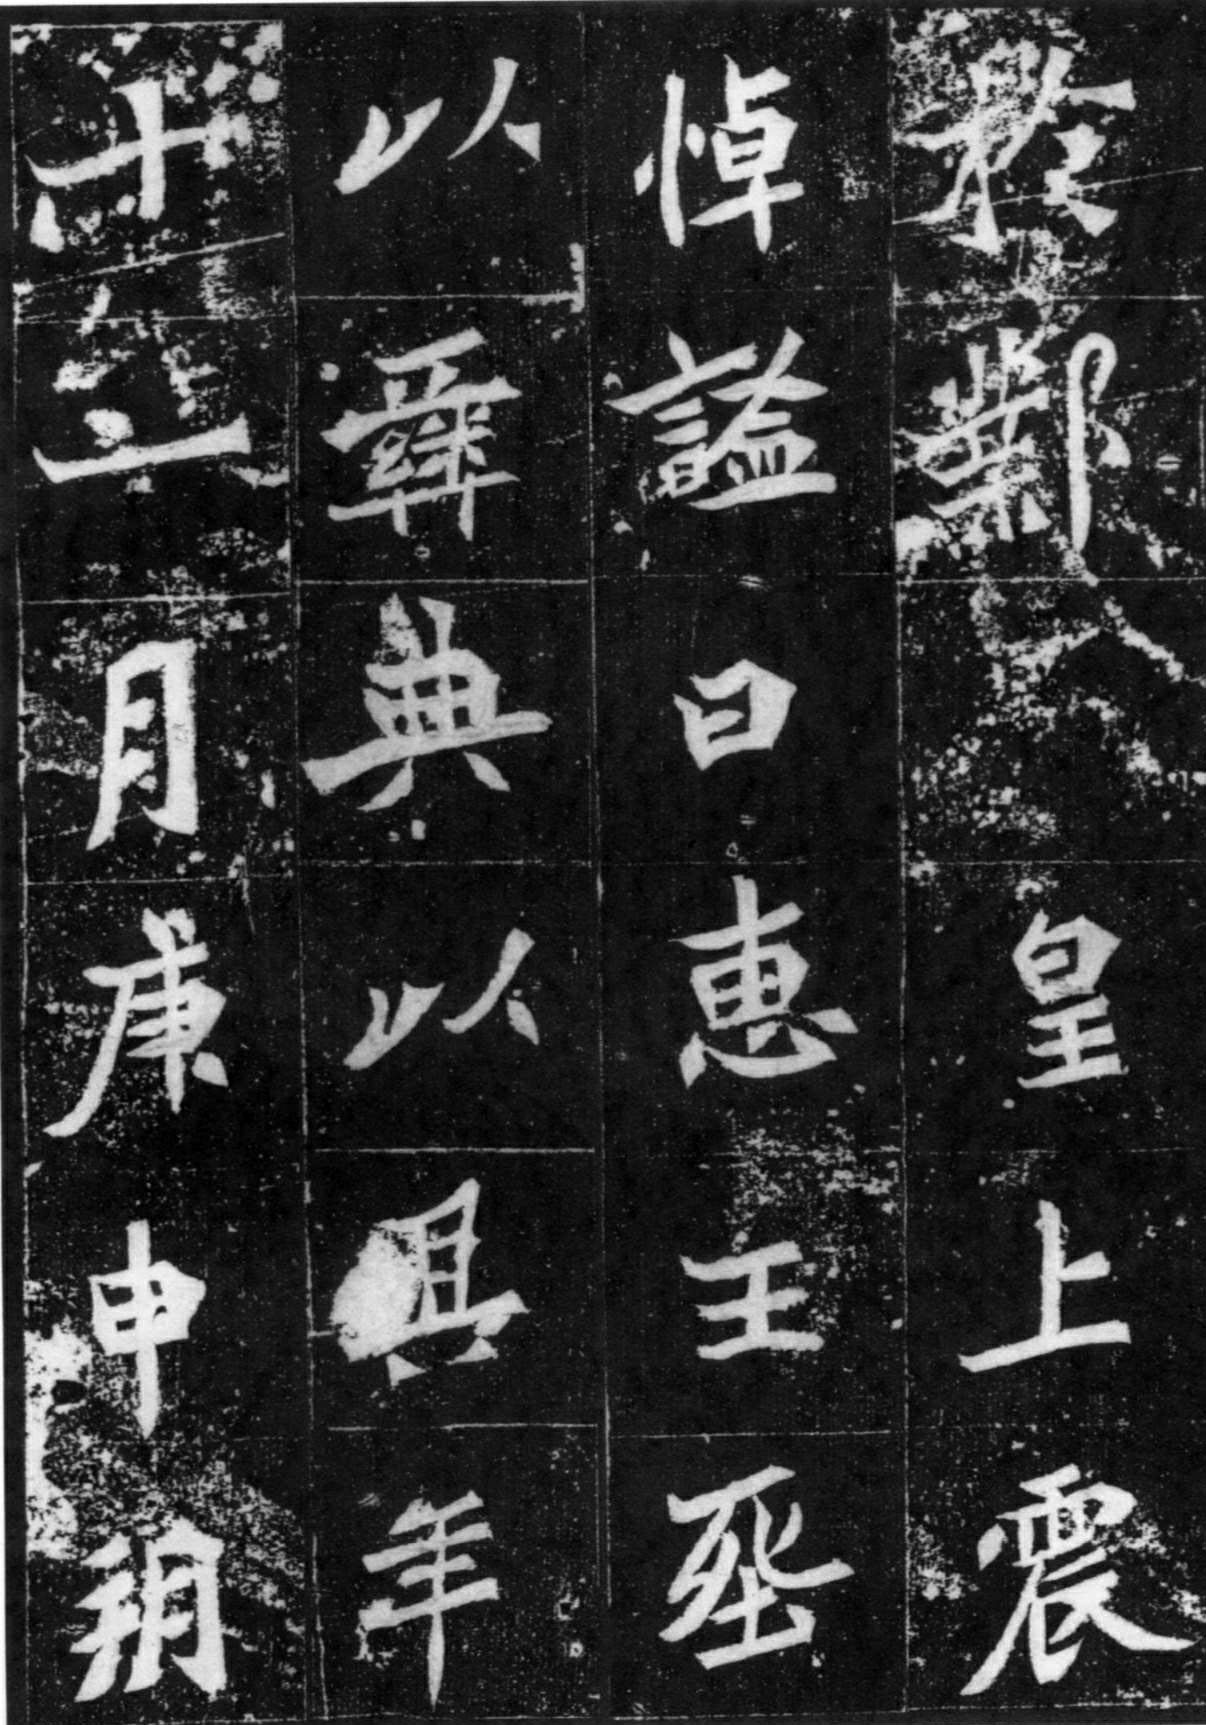 於鄴皇上震
悼謚曰惠王𦵏
以彝典以其年
十二月庚申朔